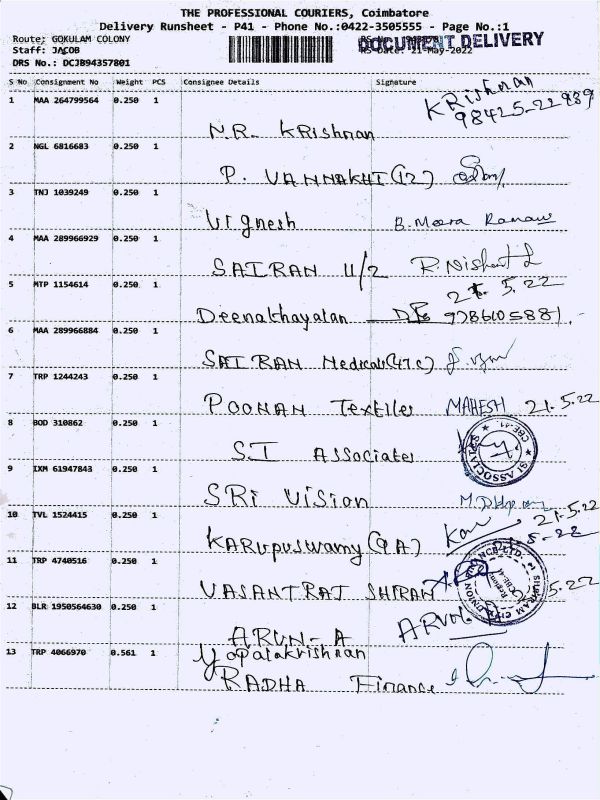 THE PROFESSIONAL COURIERS, Coimbatore
Delivery Runsheet - P41 - Phone No.:0422-3505555 - Page No.:1
Route: GOKULAM COLONY
DOCUMENT DELIVERY
Staff: JACOB
RS Date: 21-May-2022
DRS No.: DCJB94357801
S No Consignment No Weight PCS Consignee Details Signature
1 MAA 264799564 0.250 1 N.R. KRishnan KRishnan
98425-22989
2 NGL 6816683 0.250 1 P. VANNAKHI (12)
3 TNJ 1039249 0.250 1 Vignesh B. Meera Raman
4 MAA 289966929 0.250 1 SAIRAN 11/2 R. Nishant
21. 5.22
5 MTP 1154614 0.250 1 Deenathayalan 9786105881
6 MAA 289966884 0.250 1 SAIRAN Medicals (47C)
7 TRP 1244243 0.250 1 POONAN Textiles MAHESH 21.5.22
8 BOD 310862 0.250 1 S.I Associates
SI ASSOCIATES CBE-41
9 IXM 61947843 0.250 1 SRi Vision
21-5.22
10 TVL 1524415 0.250 1 KARUPUSWAMY (9A)
11 TRP 4740516 0.250 1 VASANTRAJ SHRAM
SHRIRAM CITY UNION FINANCE LTD.
12 BLR 1950564630 0.250 1 ARUN-A ARUN
13 TRP 4066970 0.561 1 Gopalakrishnan
RADHA Finance